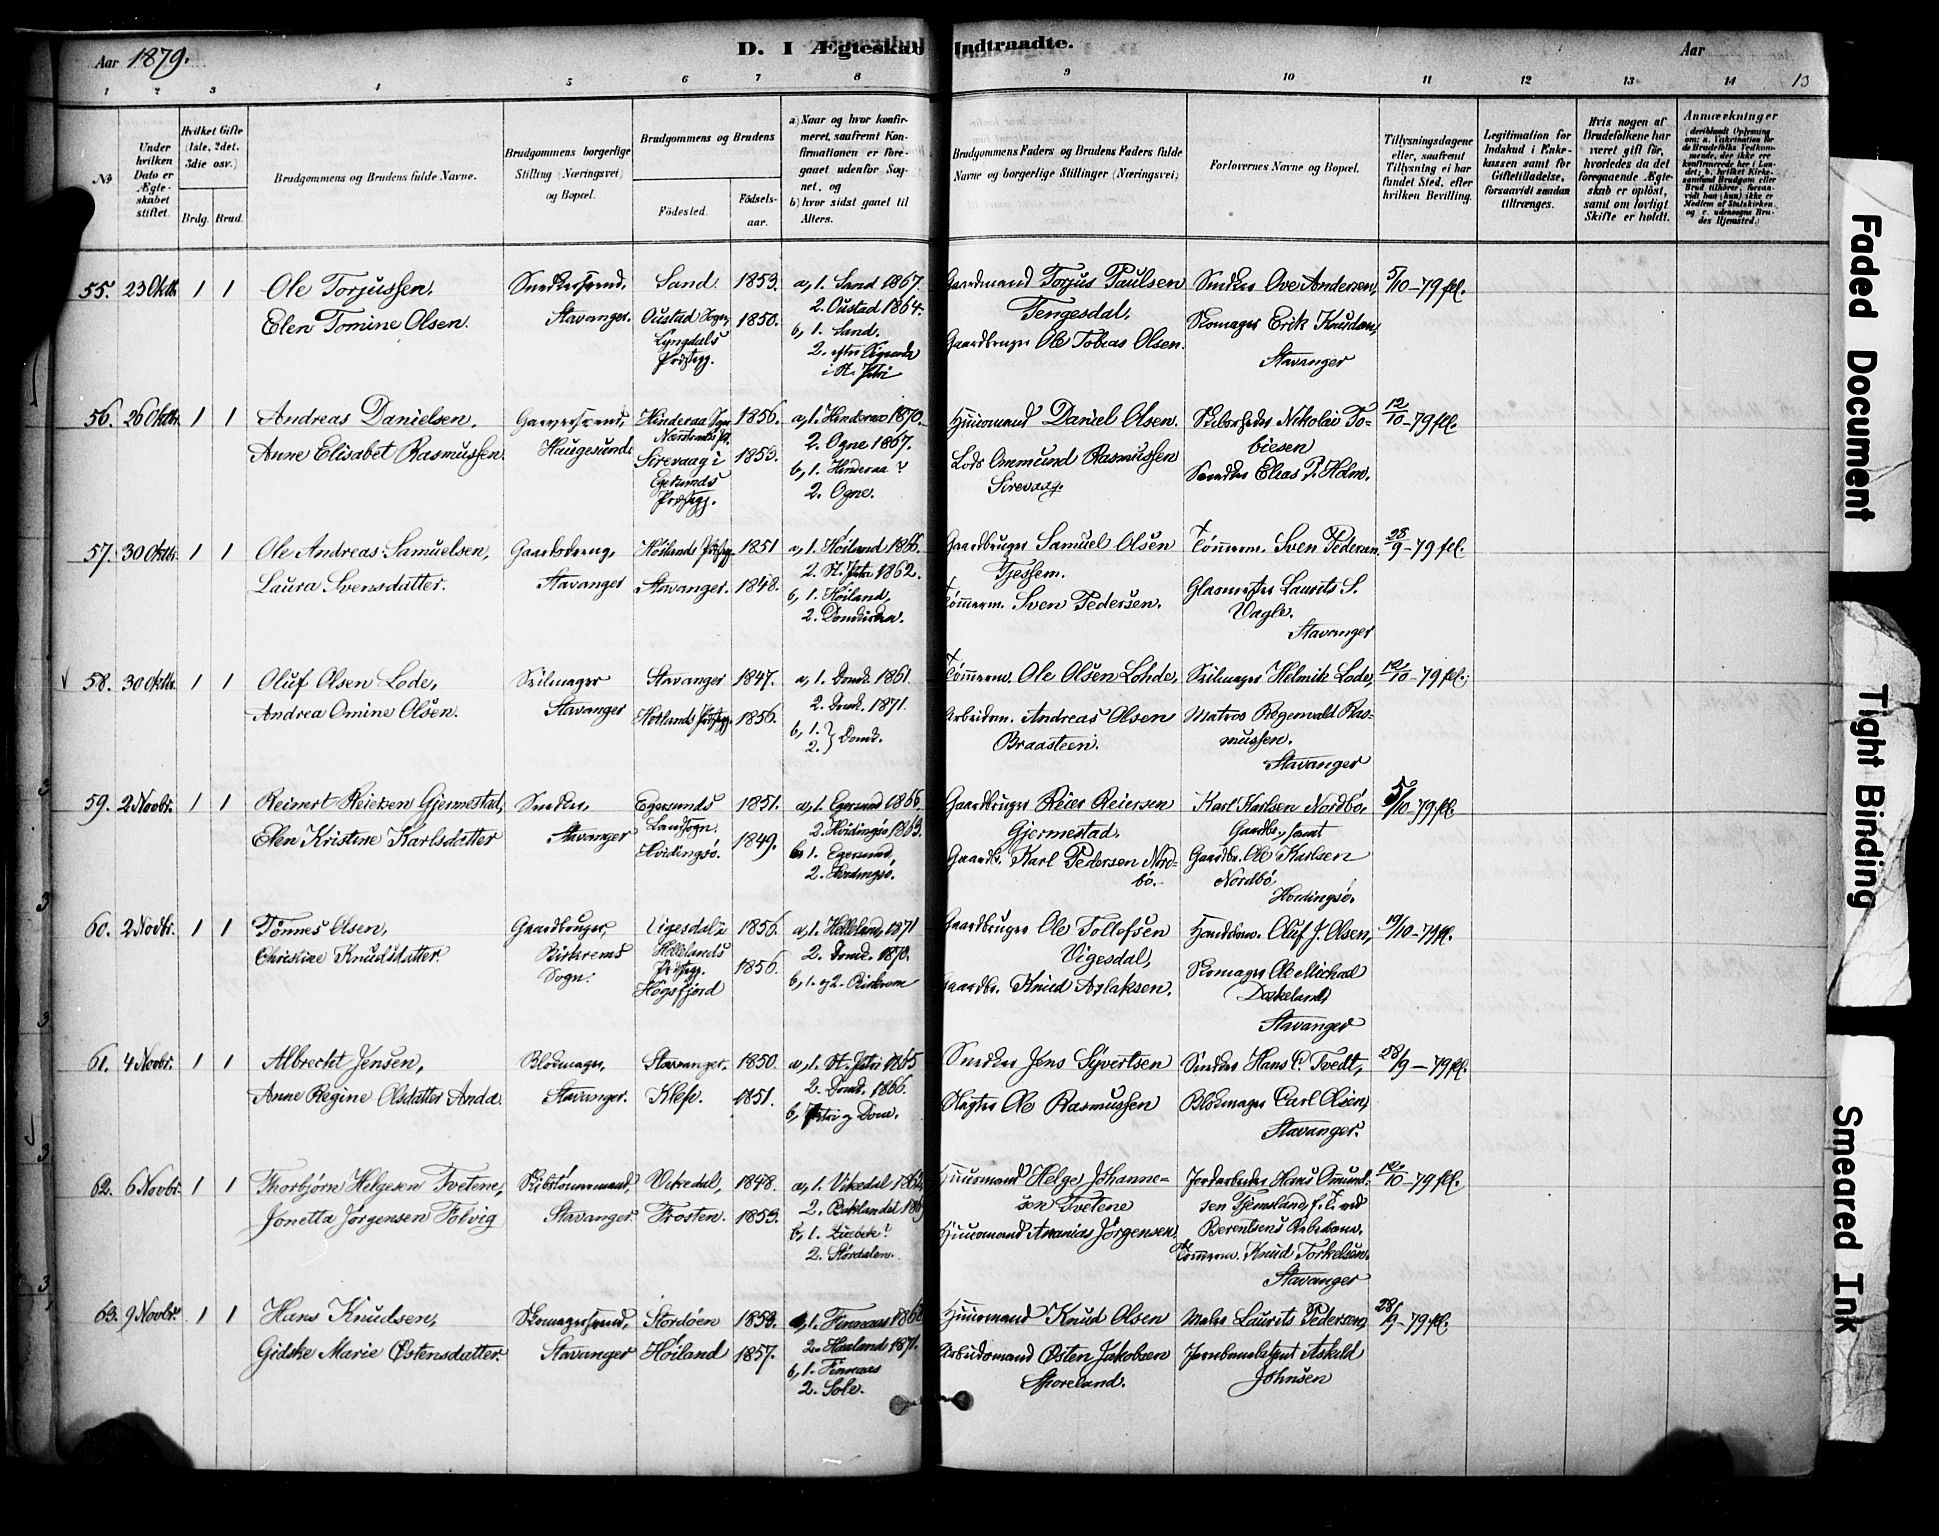 Aar 1879.
D. I Ægteskab Indtraadte.
Aar
13
1 2 3 4 5 6 7 8 9 10 11 12 13 14
No
Under hvilken Dato er Ægteskabet stiftet.
Hvilket Gifte (1ste, 2det, 3die osv.)
Brdg. Brud.
Brudgommens og Brudens fulde Navne.
Brudgommens borgerlige Stilling (Næringsvei) og Bopæl.
Brudgommens og Brudens
Fødested.
Fødselsaar.
a) Naar og hvor konfirmeret, saafremt Konfirmationen er foregaaet udenfor Sognet, og
b) hvor sidst gaaet til Alters.
Brudgommens Faders og Brudens Faders fulde Navne og borgerlige Stillinger (Næringsvei)
Forlovernes Navne og Bopæl.
Tillysningsdagene eller, saafremt Tillysning ei har fundet Sted, efter hvilken Bevilling.
Legitimation for Indskud i Enkekassen samt for Giftetilladelse, forsaavidt saadan tiltrænges.
Hvis nogen af Brudefolkene har været gift før, hvorledes da det foregaaende Ægteskab er opløst, samt om lovligt Skifte er holdt.
Anmærkninger
55. 23 Oktbr. 1 1
Ole Torjussen,
Elen Tomine Olsen.
Snedkersvend,
Stavanger.
Sand 1853.
Oustad Sogn, Lyngdals Præstegj. 1850.
a, 1. Sand 1867.
2. Oustad 1864.
b, 1. Sand.
2. efter Sigende
i St. Petri
Gaardmand Torjus Paulsen
Tengesdal,
Gaardbruger Ole Tobias Olsen.
Snedker Ove Andersen,
Skomager Erik Knudsen,
Stavanger
5/10-79 fl.
56. 26 Oktbr. 1 1
Andreas Danielsen,
Anne Elisabet Rasmussen
Garversvend,
Haugesund.
Hinderaa Sogn
Nærstrands Pr. 1856.
Sirevaag i
Egersunds
Præstegj. 1853.
a, 1. Hinderaa 1870.
2. Ogne 1867.
b, 1. Hinderaa?
2. Ogne.
Huusmand Daniel Olsen.
Lods Ommund Rasmussen
Sirevaag.
Nikolai Tobiesen
Snedker Elias P. Holm.
12/10-79 fl.
57. 30 Oktbr. 1 1
Ole Andreas Samuelsen,
Laura Svensdatter.
Gaardsdreng,
Stavanger
Høilands Præstegj. 1851
Stavanger. 1848.
a, 1. Høiland 1866.
2. St. Petri 1862.
b, 1. Høiland,
2. Domkirken.
Gaardbruger Samuel Olsen
Tjessem.
Tømmerm. Sven Pedersen.
Tømmerm. Sven Pedersen.
Glasmester Laurits S.
Vagle.
Stavanger
28/9-79 fl.
58. 30 Oktbr. 1 1
Oluf Olsen Lode,
Andrea Omine Olsen.
Seilmager
Stavanger
Stavanger 1847.
Høilands Præstegj. 1856.
a, 1. Domk. 1861.
2. Domk. 1871.
b, 1. 2. } Domk.
Tømmerm. Ole Olsen Lohde,
Arbeidsm. Andreas Olsen
Braasteen.
Seilmager Helmik Lode,
Matros Regenvald Rasmussen.
Stavanger
12/10-79 fl.
59. 2 Novbr. 1 1
Reinert Reiersen Gjermestad,
Elen Kristine Karlsdatter
Snedker,
Stavanger
Egersunds
Landsogn. 1851.
Hvidingsø. 1849.
a, 1. Egersund 1866.
2. Hvidingsø 1863.
b, 1. Egersund,
2. Hvidingsø.
Gaardbruger Reier Reiersen
Gjermestad.
Gaardb. Karl Pedersen Nordbø.
Karl Karlsen Nordbø,
Gaardbr., samt
Gaardbr. Ole Karlsen
Nordbø
Hvidingsø.
5/10-79 fl.
60. 2 Novbr. 1 1
Tønnes Olsen,
Christine Knudsdatter.
Gaardbruger,
Birkrems
Sogn.
Vigesdal i
Hellelands
Præstegj. 1856.
Høgsfjord 1856.
a, 1. Helleland 1871
2. Domk. 1870.
b, 1. og 2. Birkrem
Gaardbruger Ole Tollefsen
Vigesdal,
Gaardbr. Knud Aslaksen.
Handelsm. Oluf J. Olsen,
Skomager Ole Michael
Stavanger
19/10-79 fl.
61. 4 Novbr. 1 1
Albrecht Jensen,
Anne Regine Olsdatter Anda.
Blokmager,
Stavanger.
Stavanger. 1850.
Klep. 1851.
a, 1. St. Petri 1865
2. Domk. 1866.
b, Petri og Dom.
Snedker Jens Syvertsen
Slagter Ole Rasmussen
Snedker Hans C. Tvedt,
Blokmager Carl Olsen,
Stavanger.
28/9-79 fl.
62. 6 Novbr. 1 1
Thorbjørn Helgesen Tvetene,
Jonetta Jørgensen Følvig
Skibstømmermand,
Stavanger.
Vikedal, 1848.
Frosten. 1853.
a, 1. Vikedal 1862
2. Baklandet 1869
b, 1. Liebeke?
2. Størdalen.
Huusmand Helge Johannesen Tvetene
Huusmand Ananias Jørgensen,
Jordarbeider Hans Omundsen Tjemsland, f. T. ved
Berentsens Arbeidsm.
Tømmerm. Knud Torkelsen.
Stavanger
12/10-79 fl.
63. 9 Novbr. 1 1
Hans Knudsen,
Gidske Marie Østensdatter.
Skomagersvend,
Stavanger
Stordøen 1853.
Høiland 1857.
a, 1. Finnaas 1868
2. Haaland 1871.
b, 1. Finnaas
2. Sole.
Huusmand Knud Olsen
Arbeidsmand Østen Jakobsen
Sporeland.
Maler Laurits Pedersen,
Jernbanebetjent Askild
Johnsen
28/9-79 fl.
Faded Document
Tight Binding
Smeared Ink